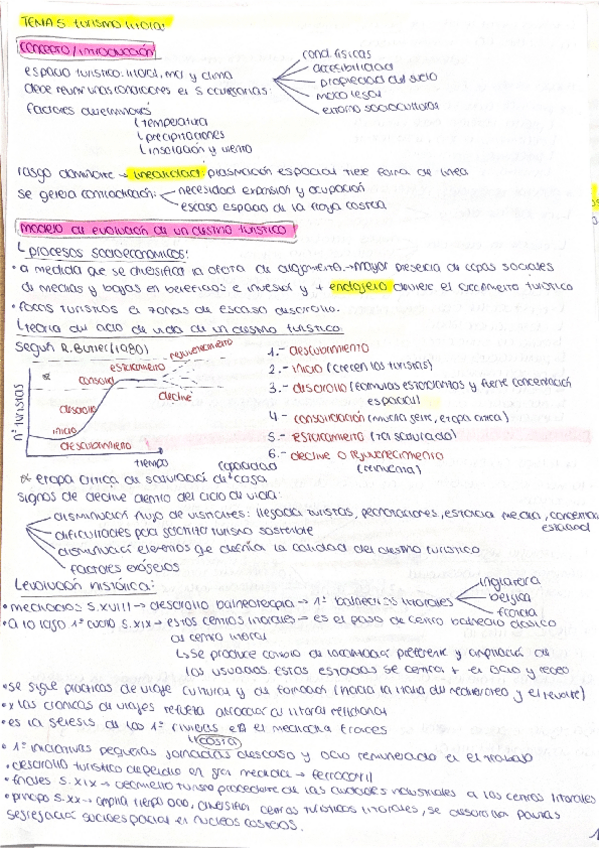 TEMA 5 turismo litoral
concepto/introducción
espacio turístico: litoral, mar y clima
debe reunir unas condiciones en 5 categorías:
cond. físicas
accesibilidad
propiedad del suelo
marco legal
entorno sociocultural
factores determinantes
temperatura
precipitaciones
insolación y viento
rasgo dominante → linealidad: plasmación espacial tiene forma de línea
se genera contradicción:
necesidad expansión y ocupación
escaso espacio de la franja costera
modelo de evolución de un destino turístico
procesos socioeconómicos:
• a medida que se diversifica la oferta de alojamiento → mayor presencia de capas sociales
de medias y bajas en beneficios e inversión y + endógeno deviene el crecimiento turístico
• focos turísticos en zonas de escaso desarrollo.
teoría del ciclo de vida de un destino turístico
según R. Butler (1980)
nº turistas
rejuvenecimiento
estancamiento
consolid
declive
desarrollo
inicio
descubrimiento
tiempo
1.- descubrimiento
2.- inicio (crecen los turistas)
3.- desarrollo (fórmulas estacionales y fuerte concentración
espacial)
4.- consolidación (mucha gente, etapa crítica)
5.- estancamiento (ya saturado)
6.- declive o rejuvenecimiento
* etapa crítica de saturación de capacidad de carga
signos de declive dentro del ciclo de vida:
disminución flujo de visitantes: llegada turistas, pernoctaciones, estancia media,
dificultades para suscitar turismo sostenible
disminución elementos que definía la calidad del destino turístico
factores exógenos
evolución histórica:
• mediados S.XVIII → desarrollo balneoterapia → 1º balnearios litorales
Inglaterra
bélgica
francia
• a lo largo 1º cuarto S.XIX → estos centros litorales → es el paso de centro balneario clásico
al centro litoral
se produce cambio de localización preferente y ampliación de
los usuarios. Estas estadas se centran en el ocio y recreo
• se sigue prácticas de viaje cultural y de formación
• x las crónicas de viajes refuerza atracción al litoral meridional
• es la génesis de las 1º rivieras en el mediodía francés
(costa)
• 1º iniciativas pequeñas jornadas descanso y ocio remunerado en el trabajo
• desarrollo turístico dependió en gran medida → ferrocarril
• finales S.XIX → crecimiento turismo procedente de las ciudades industriales a los centros litorales
• principio S.XX → amplia tiempo ocio, diversifican centros turísticos litorales, se desarrolla pautas
segregación socioespacial en núcleos costeros.
1